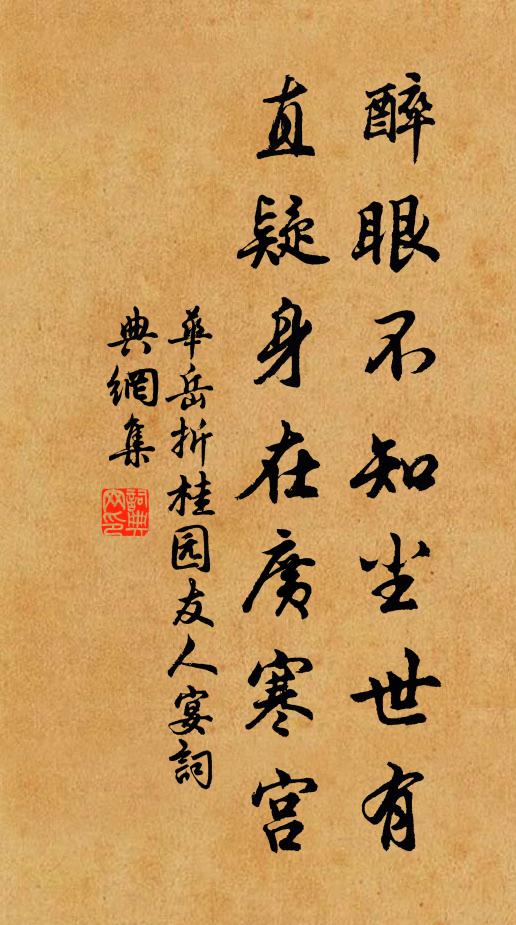 醉眼不知尘世有
直疑身在广寒宫
华岳折桂园友人宴词
典網集
詞典网印